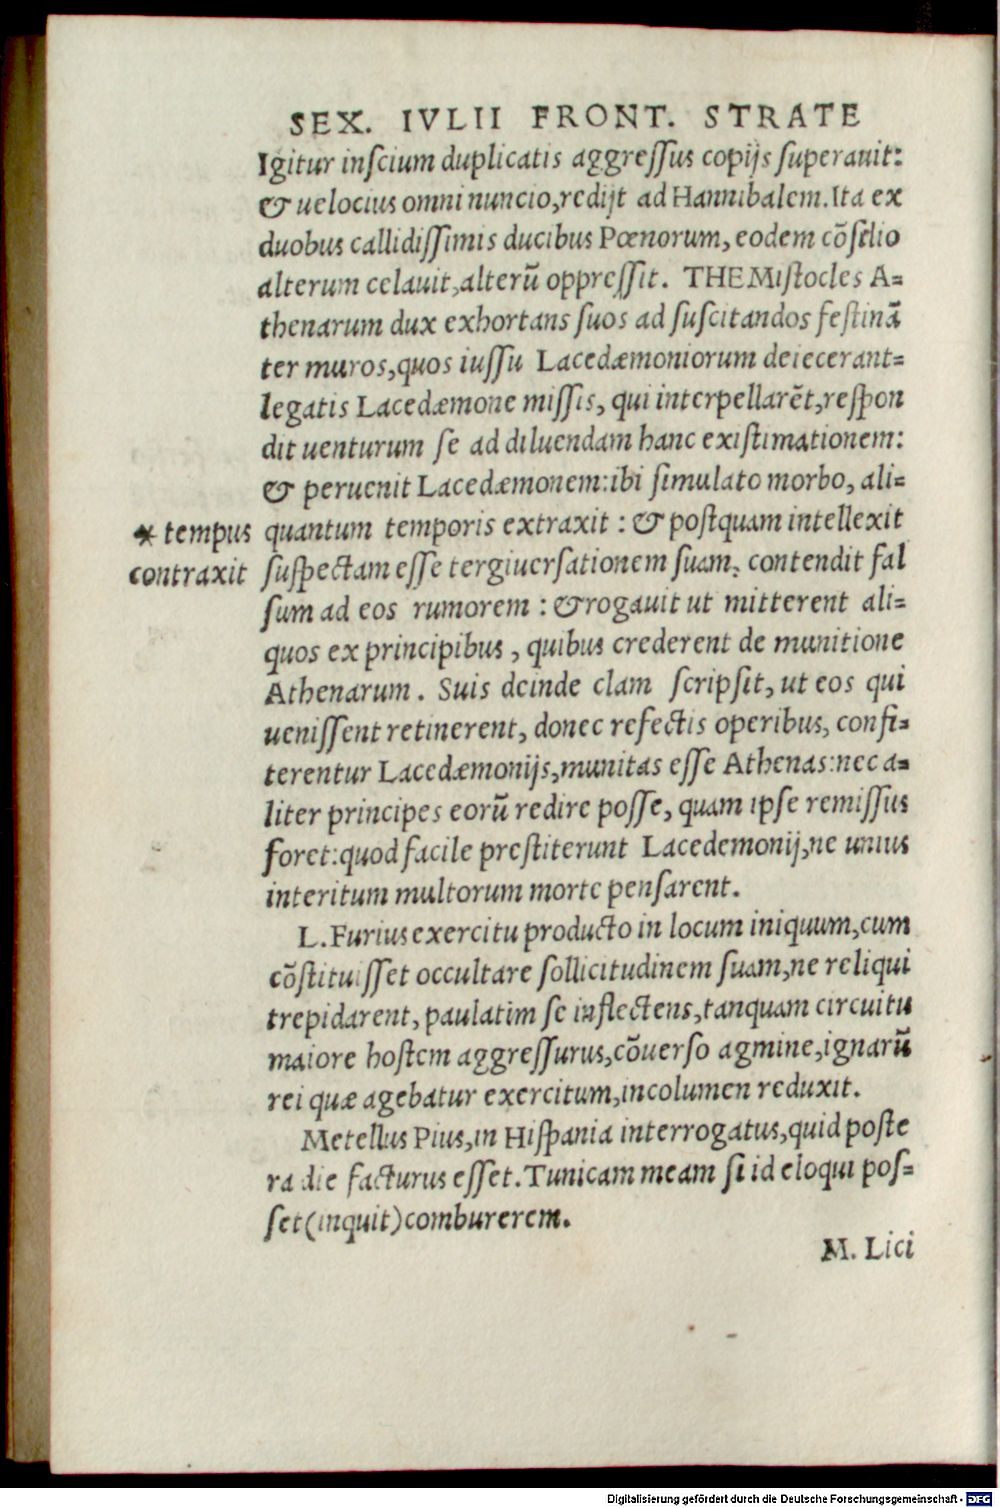 SEX. IVLII FRONT. STRATE
Igitur inscium duplicatis aggressus copijs superauit:
& uelocius omni nuncio, redijt ad Hannibalem. Ita ex
duobus callidissimis ducibus Pœnorum, eodem cōsilio
alterum celauit, alterū oppressit. THEMistocles A=
thenarum dux exhortans suos ad suscitandos festinā
ter muros, quos iussu Lacedæmoniorum deiecerant=
legatis Lacedæmone missis, qui interpellarēt, respon
dit uenturum se ad diluendam hanc existimationem:
& peruenit Lacedæmonem: ibi simulato morbo, ali=
* tempus
contraxit
quantum temporis extraxit : & postquam intellexit
suspectam esse tergiuersationem suam, contendit fal
sum ad eos rumorem : & rogauit ut mitterent ali=
quos ex principibus, quibus crederent de munitione
Athenarum. Suis deinde clam scripsit, ut eos qui
uenissent retinerent, donec refectis operibus, confi=
terentur Lacedæmonijs, munitas esse Athenas: nec a=
liter principes eorū redire posse, quam ipse remissus
foret: quod facile prestiterunt Lacedemonij, ne unius
interitum multorum morte pensarent.
L. Furius exercitu producto in locum iniquum, cum
cōstituisset occultare sollicitudinem suam, ne reliqui
trepidarent, paulatim se inflectens, tanquam circuitu
maiore hostem aggressurus, cōuerso agmine, ignarū
rei quæ agebatur exercitum, incolumen reduxit.
Metellus Pius, in Hispania interrogatus, quid poste
ra die facturus esset. Tunicam meam si id eloqui pos=
set (inquit) comburerem.
M. Lici
Digitalisierung gefördert durch die Deutsche Forschungsgemeinschaft - DFG